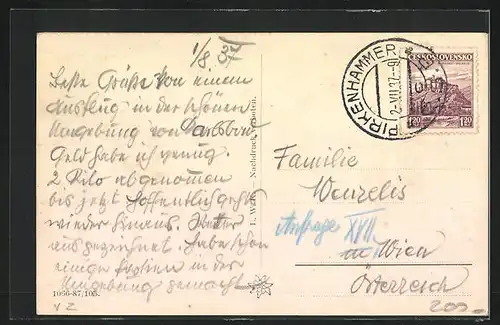 1/8
Beste Grüße von einem
Ausflug in der schönen
Umgebung von Carlsbad
Geld habe ich wenig.
2 Kilo abgenommen
bis jetzt hoffentlich geht
wieder hinaus. Wetter
ausgezeichnet. Habe schon
einige Touren in der
Umgebung gemacht
1066-87/105.
Nachdruck verboten.
PIRKENHAMMER
2-VII.37-9
ČESKOSLOVENSKO
1.20 1.20
Familie
Wenzelis
Anfrage XVII
in Wien
Österreich
200.-